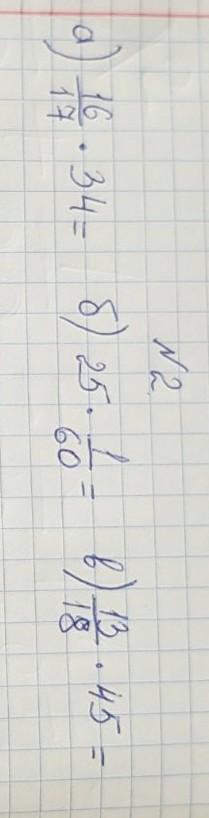 №2
а) 16/17 · 34 = б) 25 · 1/60 = в) 13/18 · 45 =